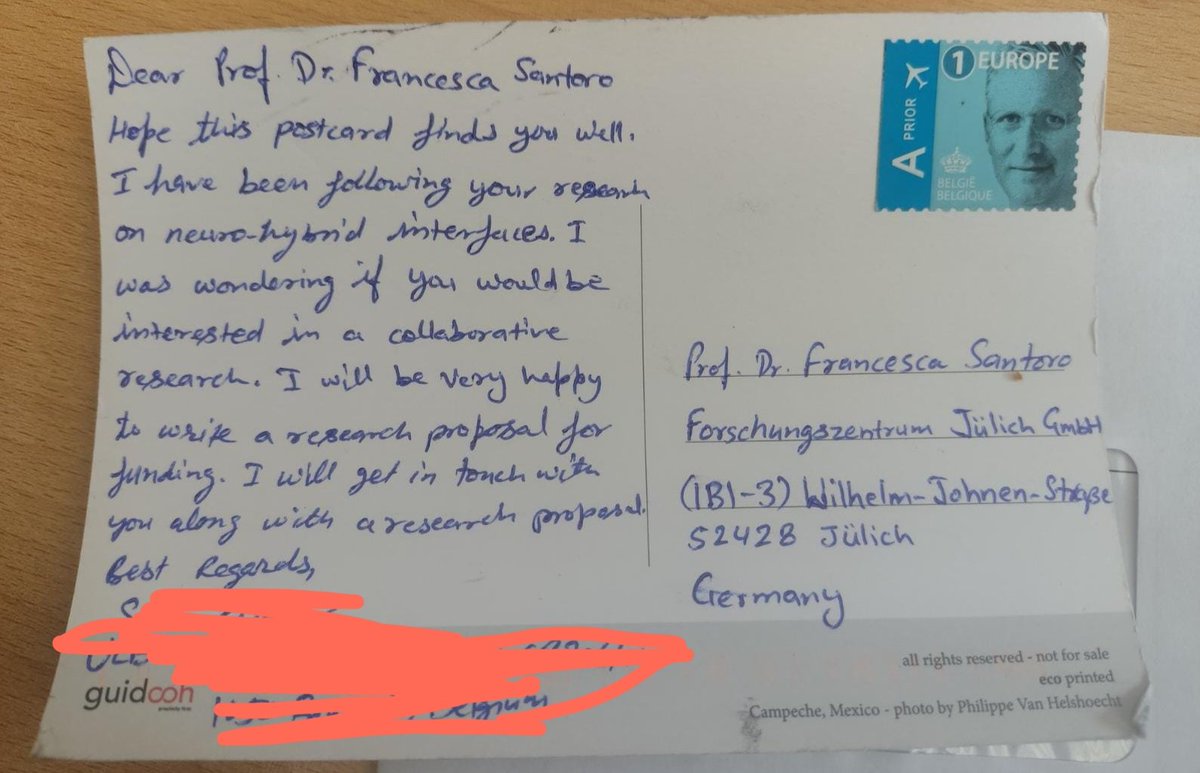 Dear Prof. Dr. Francesca Santoro
Hope this postcard finds you well.
I have been following your research
on neuro-hybrid interfaces. I
was wondering if you would be
interested in a collaborative
research. I will be very happy
to write a research proposal for
funding. I will get in touch with
you along with a research proposal.
Best Regards,
Belgium
guidoon
A PRIOR
1 EUROPE
BELGIË
BELGIQUE
Prof. Dr. Francesca Santoro
Forschungszentrum Jülich GmbH
(IBI-3) Wilhelm-Johnen-Straße
52428 Jülich
Germany
all rights reserved - not for sale
eco printed
Campeche, Mexico - photo by Philippe Van Helshoecht